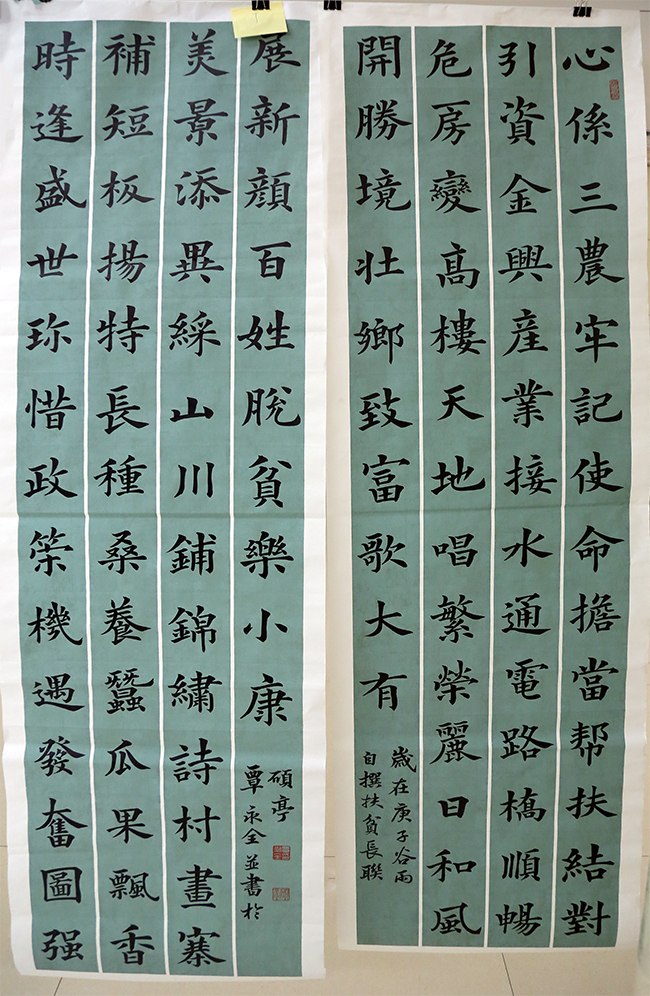 心係三農牢記使命擔當帮扶結對
引資金興産業接水通電路橋順暢
危房變高樓天地唱繁榮麗日和風
開勝境壯鄉致富歌大有
歲在庚子谷雨
自撰扶貧長聯
時逢盛世珎惜政策機遇發奮圖强
補短板揚特長種桑養蠶瓜果飄香
美景添異綵山川鋪錦繡詩村畫寨
展新顔百姓脱貧樂小康
碩亭
覃永全並書於